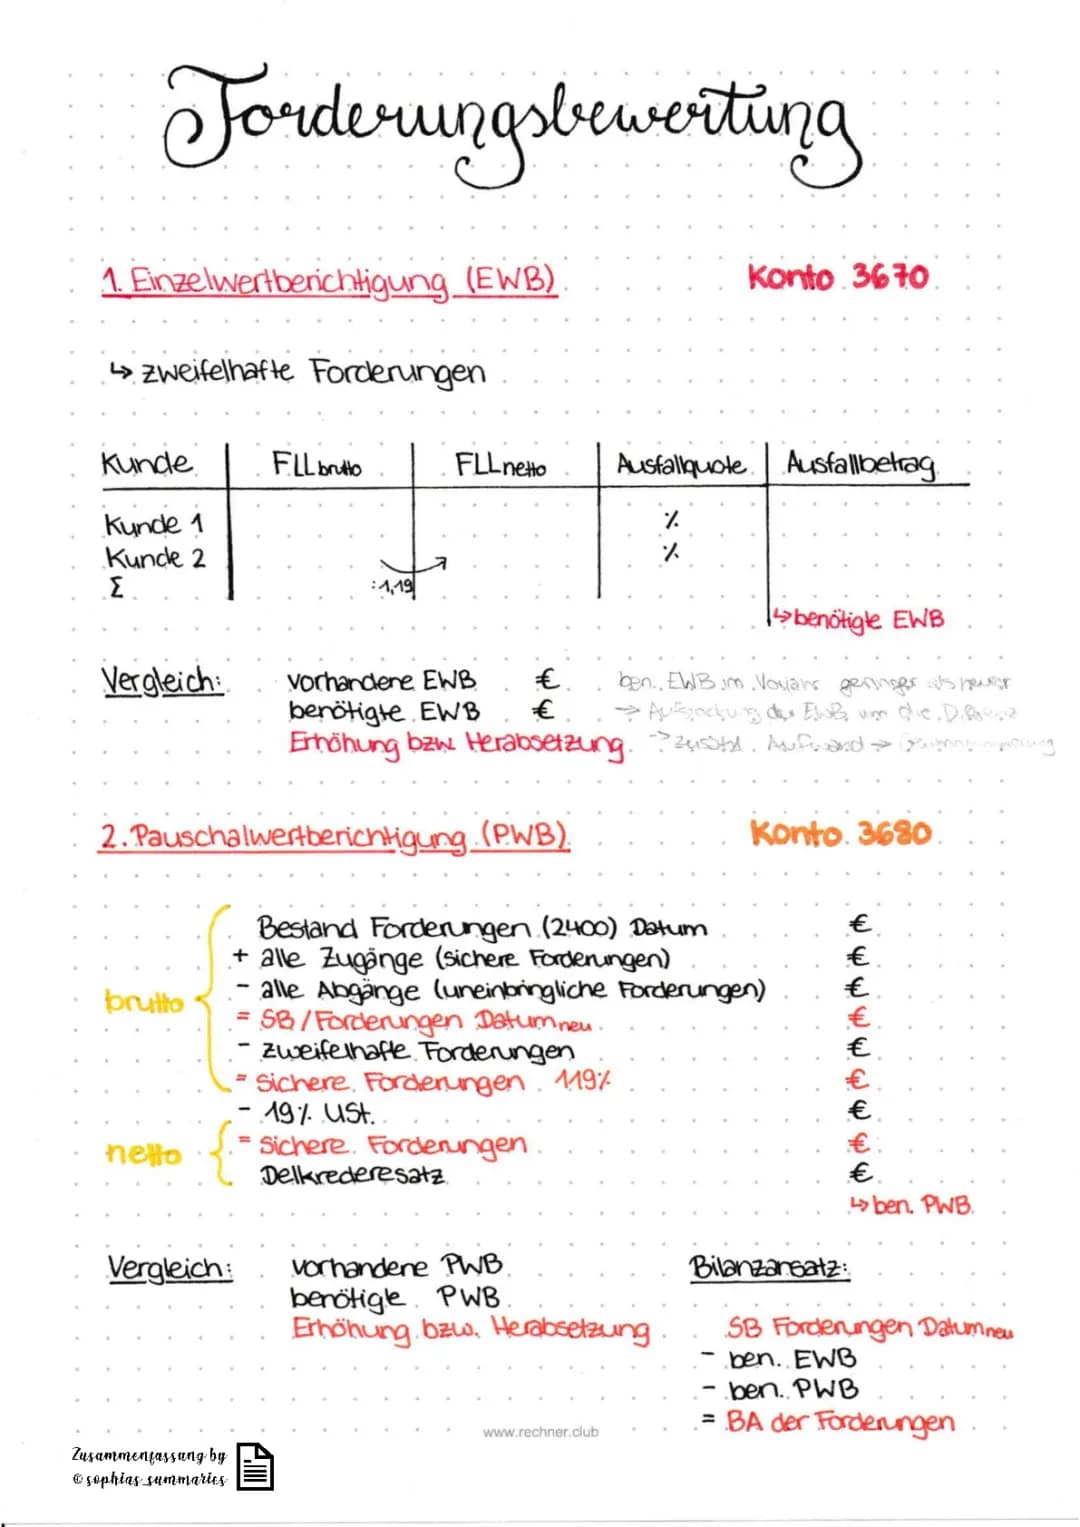 Forderungsbewertung
1. Einzelwertberichtigung (EWB) Konto 3670
↳ zweifelhafte Forderungen
Kunde FLL brutto FLL netto Ausfallquote Ausfallbetrag
Kunde 1 %
Kunde 2 %
Σ :1,19
↳ benötigte EWB
Vergleich: vorhandene EWB € ben. EWB im Vorjahr geringer als heuer
benötigte EWB € → Aufstockung der EWB um die Differenz
Erhöhung bzw. Herabsetzung → zusätzl. Aufwand →
2. Pauschalwertberichtigung (PWB) Konto 3680
Bestand Forderungen (2400) Datum €
+ alle Zugänge (sichere Forderungen) €
brutto - alle Abgänge (uneinbringliche Forderungen) €
= SB / Forderungen Datum neu €
- zweifelhafte Forderungen €
= Sichere Forderungen 119% €
- 19% USt. €
netto = Sichere Forderungen €
Delkrederesatz €
↳ ben. PWB
Vergleich: vorhandene PWB Bilanzansatz:
benötigte PWB
Erhöhung bzw. Herabsetzung SB Forderungen Datum neu
- ben. EWB
- ben. PWB
= BA der Forderungen
www.rechner.club
Zusammenfassung by
@sophias_summaries